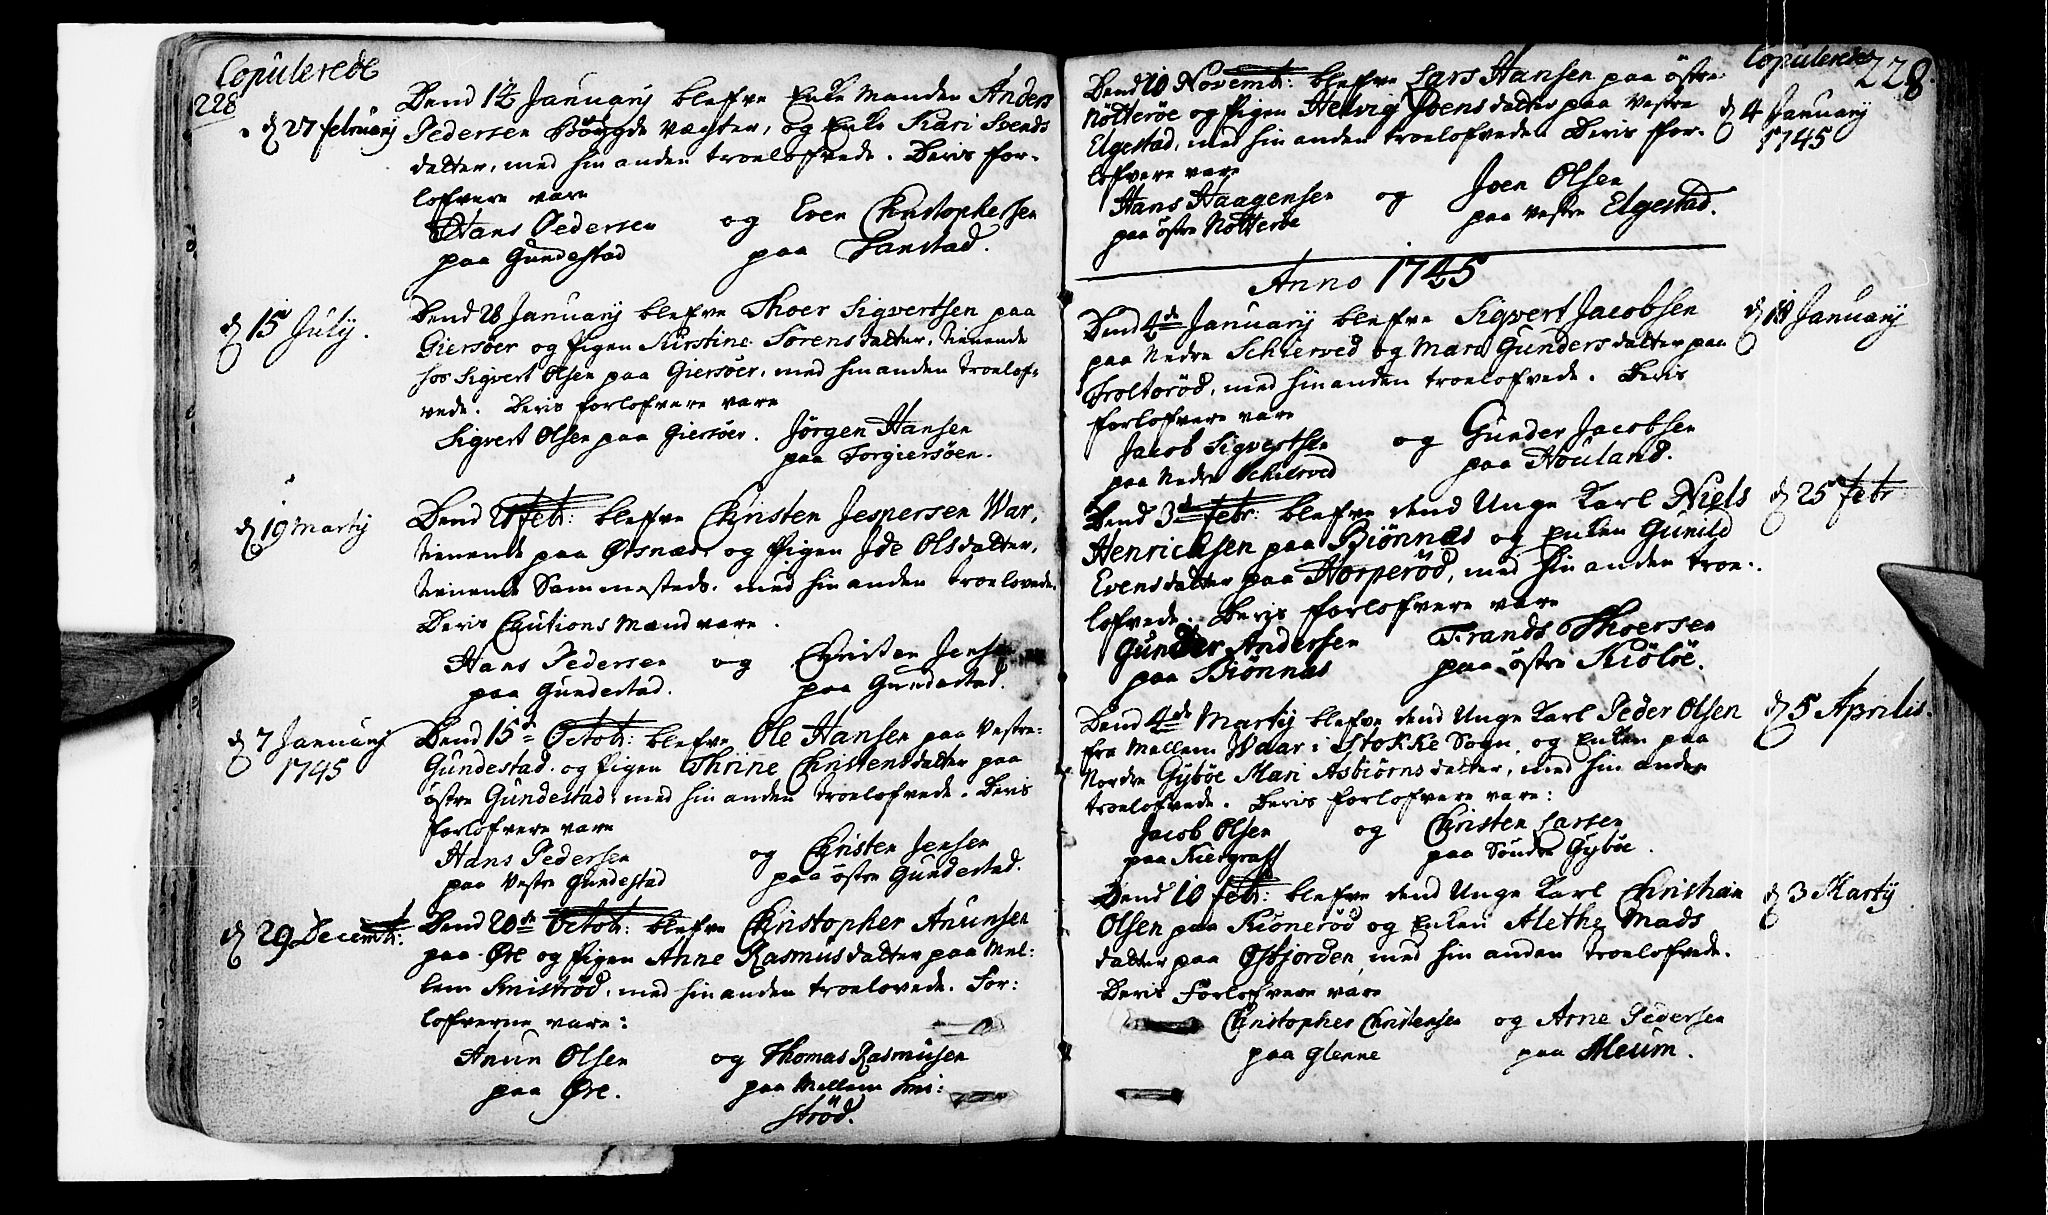 Copulerede
228
d 27 february
Dend 14 January blefve Enke Manden Anders
Pedersen Bøygde Vægter, og Enke Kari Svends
datter, med hin anden troelofvede. Deris for-
lofvere vare
Hans Pedersen og Even Christophersen
paa Gundestad paa Fanstad.
d 15 July.
Dend 28 January blefve Thoer Sigvertsen paa
Giersøer og Pigen Kirstine Sørens datter, tienende
hos Sigvert Olsen paa Giersøer, med hin anden troelof-
vede. Deris forlofvere vare
Sigvert Olsen paa Giersøer. Jørgen Hansen
paa Torgiersøen.
d 19 Martij
Dend 21 febr: blefve Christen Jespersen War,
tienende paa Ørsnæs, og Pigen Ide Olsdatter,
tienende Sammesteds, med hin anden troelovede.
Deris Cautions Mænd vare.
Hans Pedersen og Christen Jensen
paa Gundestad. paa Gundestad.
d 7 January
1745
Dend 15de Octob: blefve Ole Hansen paa Vestre-
Gundestad og Pigen Thrine Christensdatter paa
østre Gundestad, med hin anden troelofvede. Deris
forlofvere vare
Hans Pedersen og Christen Jensen
paa Vestre Gundestad paa østre Gundestad.
d 29 Decemb:
Dend 20de Octob: blefve Christopher Anunsen
paa Øre og Pigen Anne Rasmusdatter paa Mel-
lem Smistrød, med hin anden troelovede. For-
lofverne vare:
Anun Olsen og Thomas Rasmusen
paa Øre. paa Mellem Smi-
strød.
Copulerede 228.
Dend 10 Novemb: blefve Lars Hansen paa østre
Nötterøe og Pigen Helvig Joensdatter paa Vestre
Elgestad, med hin anden troelofvede. Deris for-
lofvere vare
d 4 January
1745
Hans Haagensen og Joen Olsen
paa østre Nötterøe paa Vestre Elgestad.
Anno 1745
Dend 4de January blefve Sigvert Jacobsen
paa Nedre Schierved og Mari Gunders datter paa
Troltørød, med hin anden troelofvede. Deris
forlofvere vare
d 18 January
Jacob Sigvertsen og Gunder Jacobsen
paa Nedre Schierved paa Houland.
Dend 3de febr: blefve dend Unge Karl Niels
Henrichsen paa Biönnæs og Enken Gunild
Evensdatter paa Horperöd, med hin anden troe-
lofvede. Deris forlofvere vare
d 25 febr
Gunder Andersen Frands Thoersen
paa Biönnæs paa østre Kiölöe.
Dend 4de Martij blefve dend Unge Karl Peder Olsen
fra Mellem Waar i Stokke Sogn, og Enken paa
Nordre Gybøe Mari Asbiørns datter, med hin anden
troelofvede. Deris forlofvere vare:
d 5 Aprilis.
Jacob Olsen og Christen Larsen
paa paa Søndre Gybøe.
Dend 10 febr: blefve dend Unge Karl Christian
Olsen paa Kiönerød og Enken Alethe Mads
datter paa med hin anden troelofvede.
Deris Forlofvere vare
d 3 Martij
Christopher Christensen og Arne Pedersen
paa Glenne paa Meum.